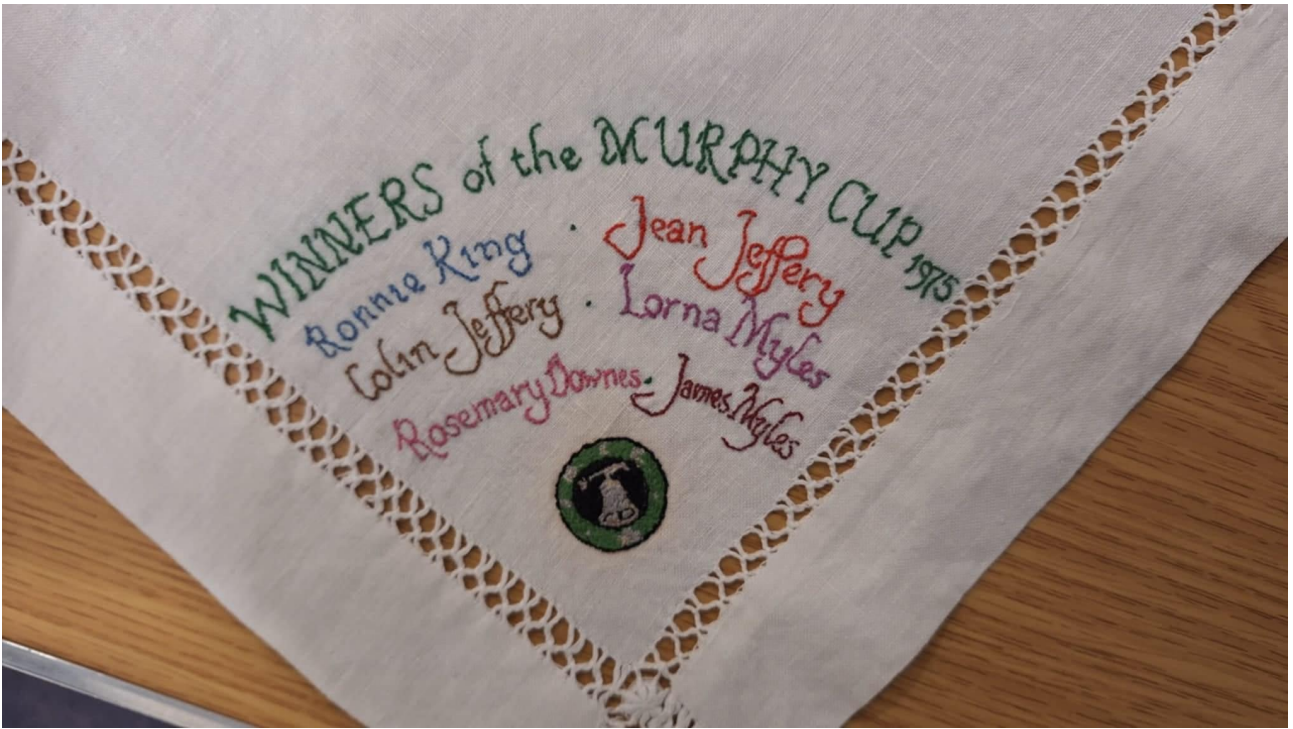 WINNERS of the MURPHY CUP 1975
Ronnie King · Jean Jeffery
Colin Jeffery · Lorna Myles
Rosemary Downes · James Myles